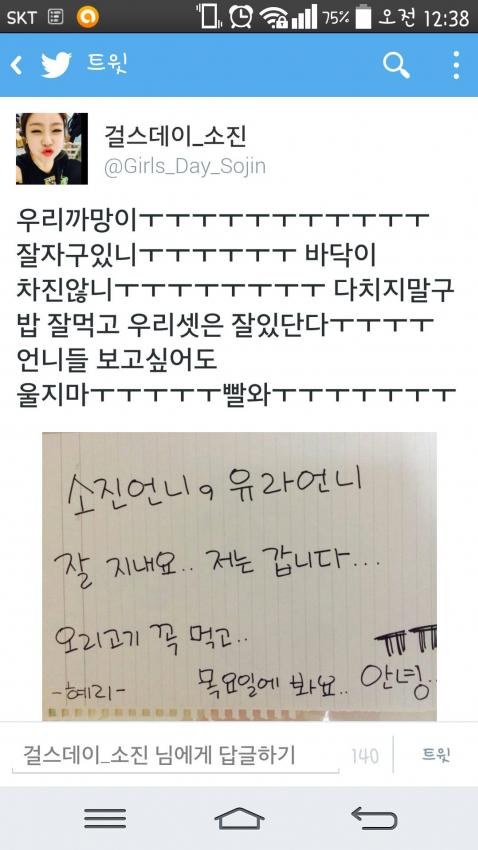 SKT 75% 오전 12:38
트윗
걸스데이_소진
@Girls_Day_Sojin
우리까망이ㅜㅜㅜㅜㅜㅜㅜㅜㅜㅜㅜ
잘자구있니ㅜㅜㅜㅜㅜㅜ 바닥이
차진않니ㅜㅜㅜㅜㅜㅜㅜㅜ 다치지말구
밥 잘먹고 우리셋은 잘있단다ㅜㅜㅜㅜ
언니들 보고싶어도
울지마ㅜㅜㅜㅜㅜ빨와ㅜㅜㅜㅜㅜㅜㅜ
소진언니, 유라언니
잘 지내요.. 저는 갑니다...
오리고기 꼭 먹고..
ㅠㅠ
-혜리- 목요일에 봐요.. 안녕..
걸스데이_소진 님에게 답글하기 140 트윗